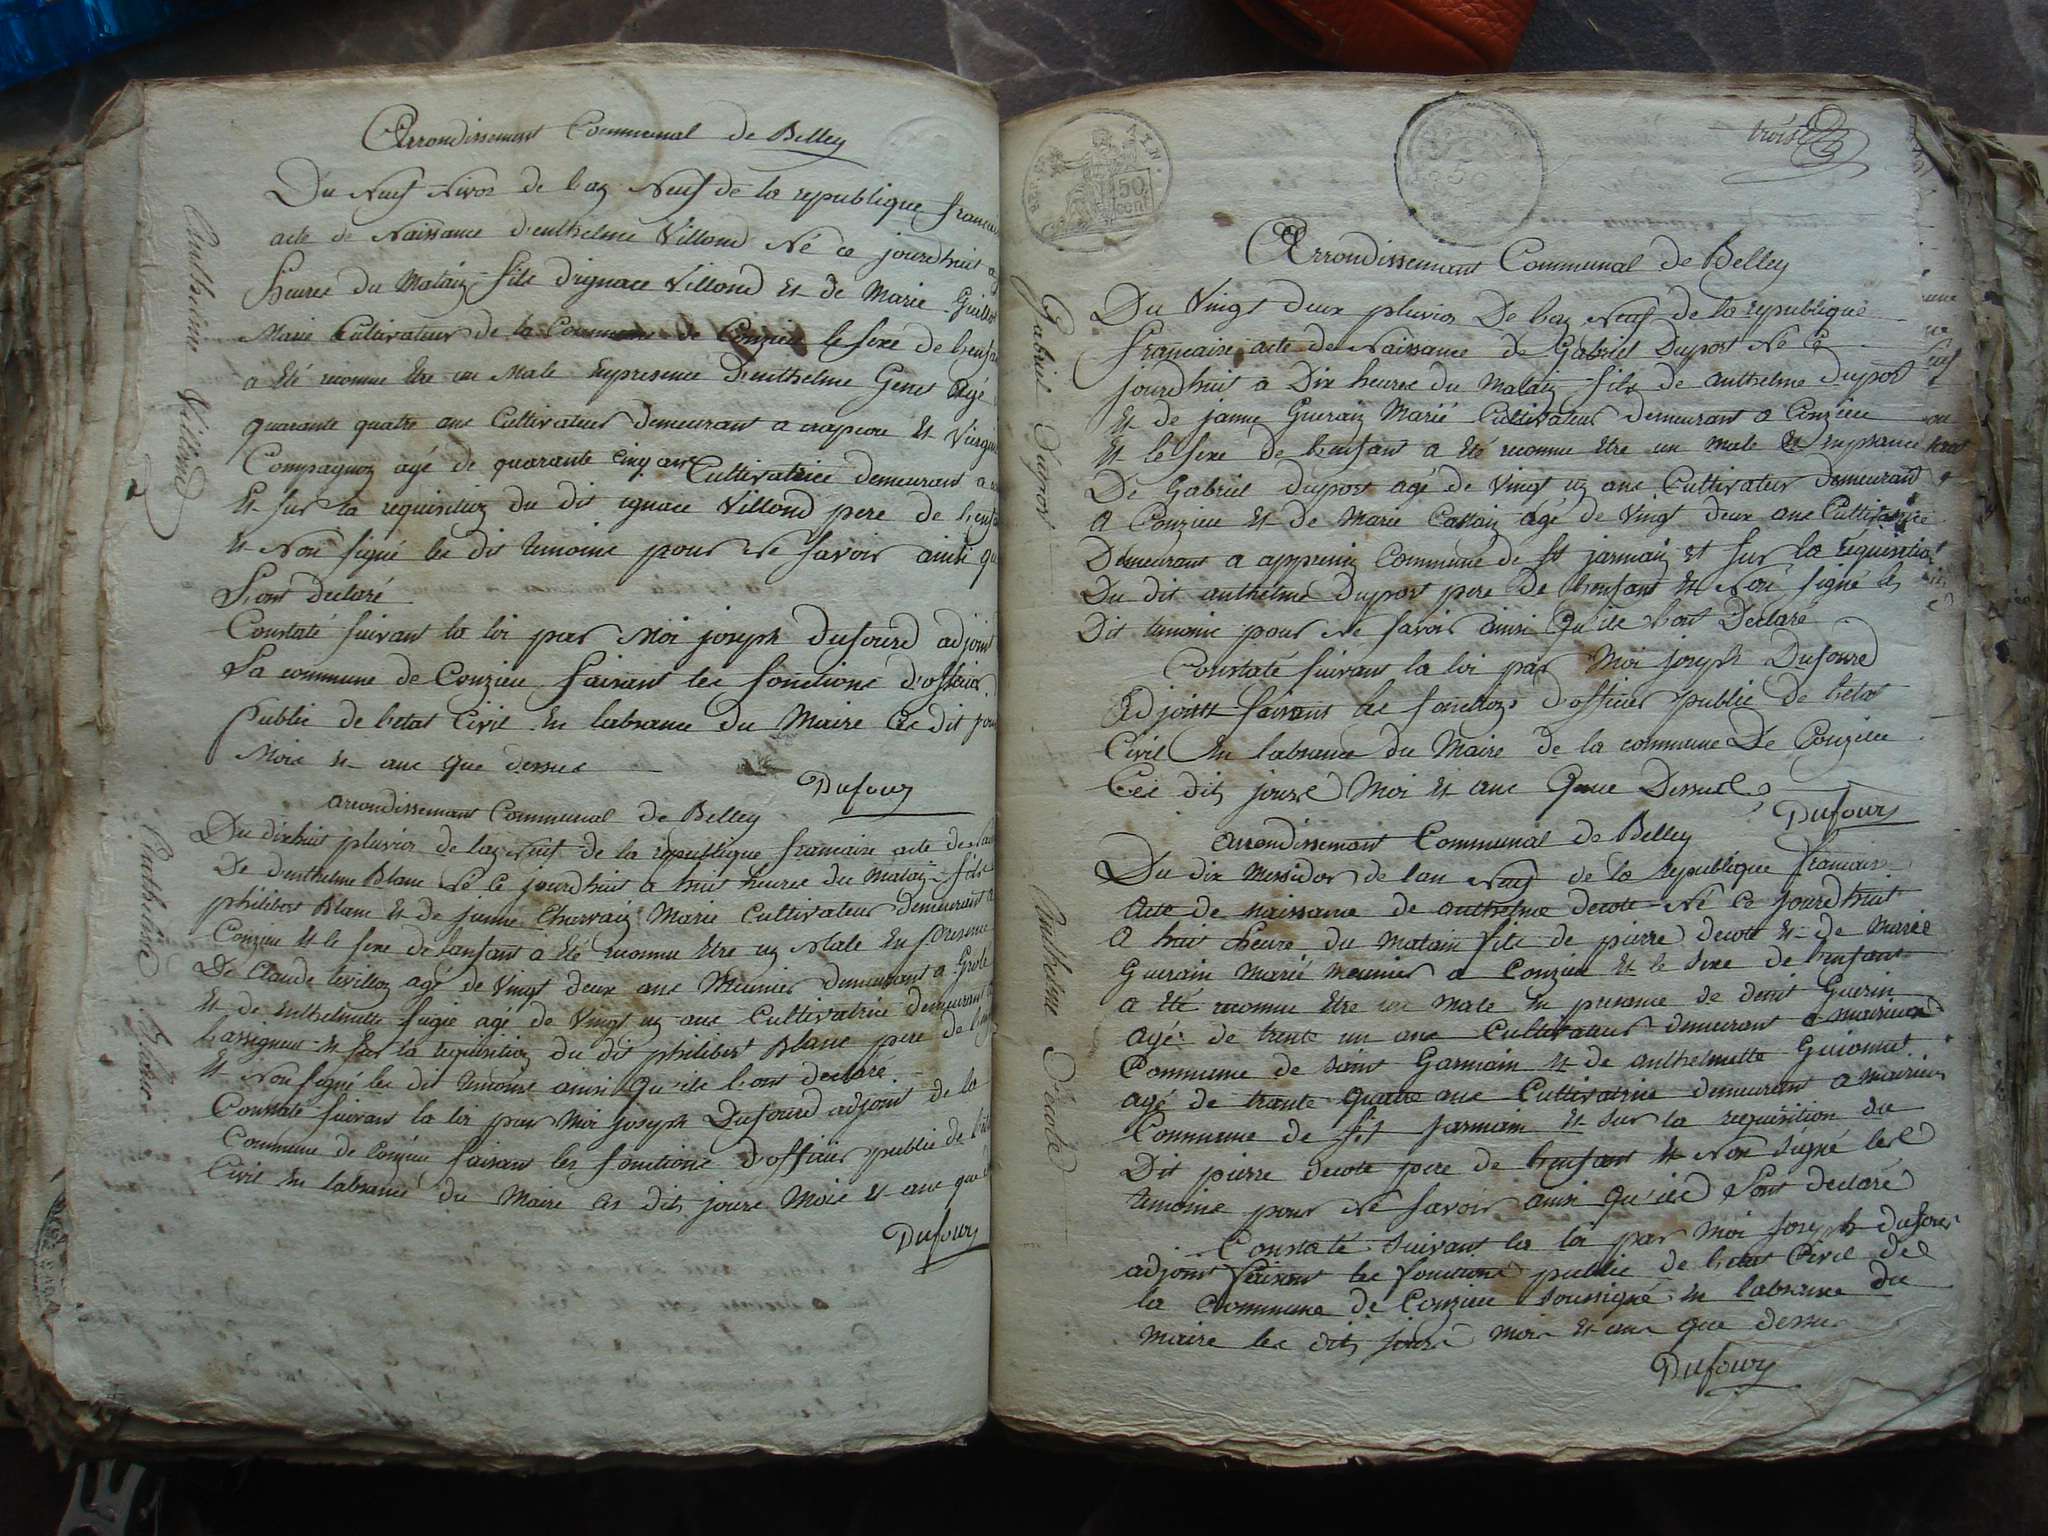 Arrondissement Communal de Belley
Du Neuf Nivos de l'an Neuf de la republique francai
acte de Naissance d'enthelme Villond Né ce jourdhuit a
heures du Matain fils d'ignace Villond et de Marie Guillot
Marie Cultivateur de la Commune de Conzieu le sexe de lenfa
a été reconnu être un Male en presence d'enthelme Genet Agé
quarante quatre ans Cultivateur demeurant a crapeou et Virgin
Compagnon agé de quarante cinq ans Cultivatrice demeurant a
et sur la requisition du dit ignace Villond pere de lenfa
et Non signé les dit temoins pour ne savoir ainsi qu
lont declaré
Constaté suivant la loi par Moi joseph Dufourd adjoint
La commune de Conzieu faisant les fonctions d'officier
Public de l'etat Civil En labsance du Maire Les dit jour
Mois et ans que dessus
Dufour
Anthelme Villond
arrondissement Communal de Belley
Du dixhuit pluvios de lan Neuf de la republique francaise acte de
De d'enthelme Blanc Né ce jourdhuit a huit heures du Matain fils
philibert Blanc et de janne Charvain Marie Cultivateur demeurant a
Conzieu et le sexe de lanfant a été reconnu être un Male En presence
De Claude levillon agé de Vingt deux ans Meunier demeurant a Grole
et de enthelmette fugie agé de Vingt un ans Cultivatrice demeurant
larsigneux et sur la requisition du dit philibert Blanc pere de l
et Non signé les dit temoins ainsi qu'ils l'ont declaré
Constaté suivant la loi par Moi joseph Dufourd adjoint de la
Commune de Conzieu faisant les fonctions d'officier public de l'etat
Civil En labsance du Maire les dits jours Mois et ans que
Dufour
Enthelme Blanc
trois
REP. FRA. AIN.
50 cent
Arrondissement Communal de Belley
Du Vingt deux pluvios De lan Neuf de la republique
francaise acte de Naissance de Gabriel Duport Né ce
jourdhuit a Dix heures du Matain fils de anthelme duport
et de janne Guerain Marié Cultivateur demeurant a Conzieu
et le sexe de lenfant a été reconnu être un male et en presance
De Gabriel duport agé de Vingt un ans Cultivateur Demeurant
a Conzieu et de Marie Cattain agé de Vingt deux ans Cultivatrice
Demeurant a appregnin Commune de st jarmain et sur la requisition
Du dit anthelme Duport pere De lenfant et Non signé les
Dit temoins pour ne savoir ainsi Qu'ils lont Declaré
Constaté suivant la loi par Moi joseph Dufourd
Adjoint faisant les fonctions d'officier public de letat
Civil En labsance du Maire de la commune De Conzieu
Les dits jours Moi et ans Que Dessus
Dufour
Gabriel Duport
arrondissement Communal de Belley
Du dix Messidor de lan Neuf de la republique francaise
Acte de naissance de anthelme decote Né ce jourdhuit
a huit heure du matain fils de pierre decote et de Marie
Guerain marié meunier a Conzieu et le sexe de lenfant
a été reconnu être un male en presance de denit Guerin
agé de trente un ans Cultivateur demeurant a mairieux
Commune de saint Garmain et de anthelmette Guionnet
agé de trante quatre ans Cultivatrice demeurant a mairieu
Commune de st jarmain et sur la requisition du
Dit pierre decote pere de lenfant et Non signé les
temoins pour ne savoir ainsi qu'ils lont declaré
Constaté suivant la loi par Moi joseph dufour
adjoint faisant les fonctions public de letat Civil de
la Commune de Conzieu soussigné en labsance du
maire les dits jours mois et ans que dessus
Dufour
Anthelme Decote